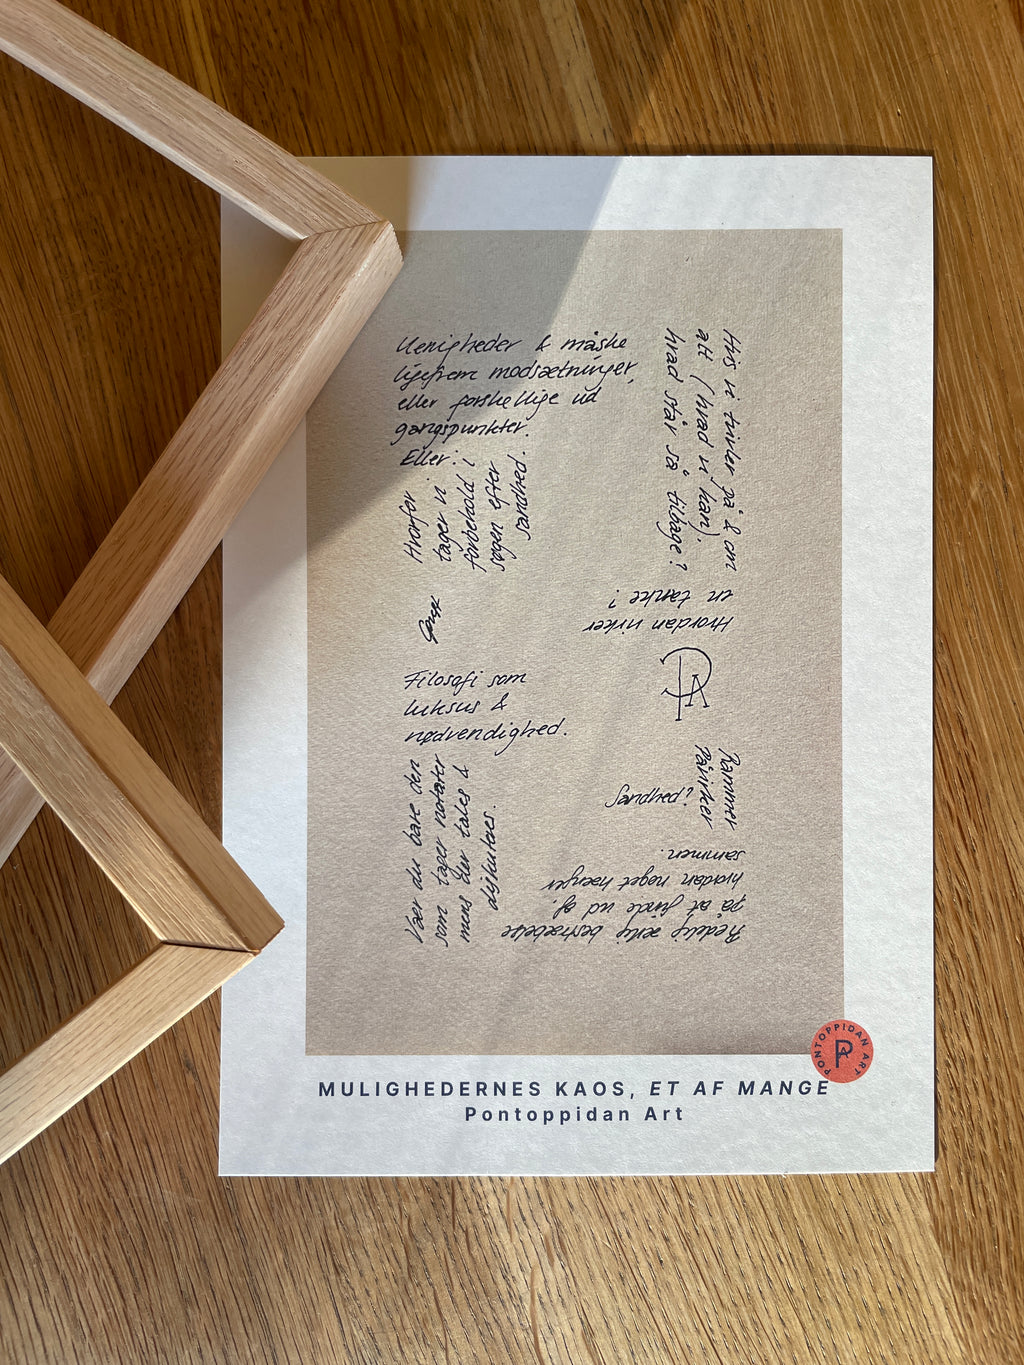 Uenigheder & måske
ligefrem modsætninger,
eller forskellige ud
gangspunkter.
Eller:
Hvorfor
tager vi
forbehold i
søgen efter
sandhed.
Filosofi som
luksus &
nødvendighed.
Vær du bare den
som tager notater
mens der tales &
diskuteres.
Hvis vi tvivler på & om
alt (hvad vi kan),
hvad står så tilbage?
Hvordan virker
en tanke?
Rammer
Påvirker
Sandhed?
Redelig ærlig bestræbelse
på at finde ud af,
hvordan noget hænger
sammen.
PONTOPPIDAN ART
MULIGHEDERNES KAOS, ET AF MANGE
Pontoppidan Art